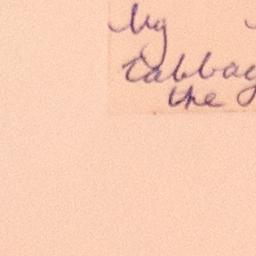 My
Cabbag
the